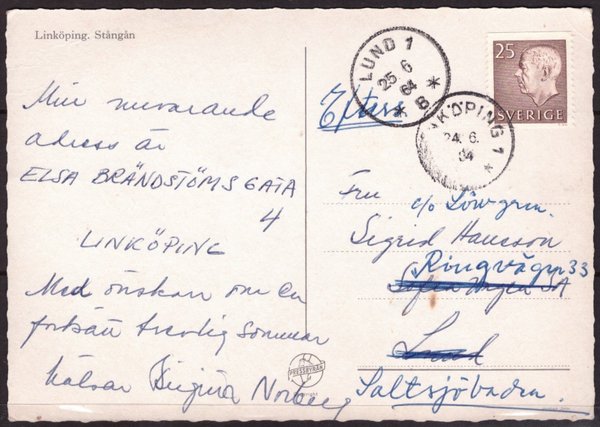 Linköping. Stångån
Min nuvarande
adress är
ELSA BRÄNDSTÖMS GATA
4
LINKÖPING
Med önskan om en
fortsatt trevlig sommar
hälsar Birgitta Norberg
PRESSBYRÅN
LUND 1
25 6
64
* B *
KÖPING 1
24. 6.
64
*
25
SVERIGE
Efters
Fru
c/o Löwgren.
Sigrid Hansson
Ringvägen 33
Sofiavägen 5A
Lund
Saltsjöbaden.